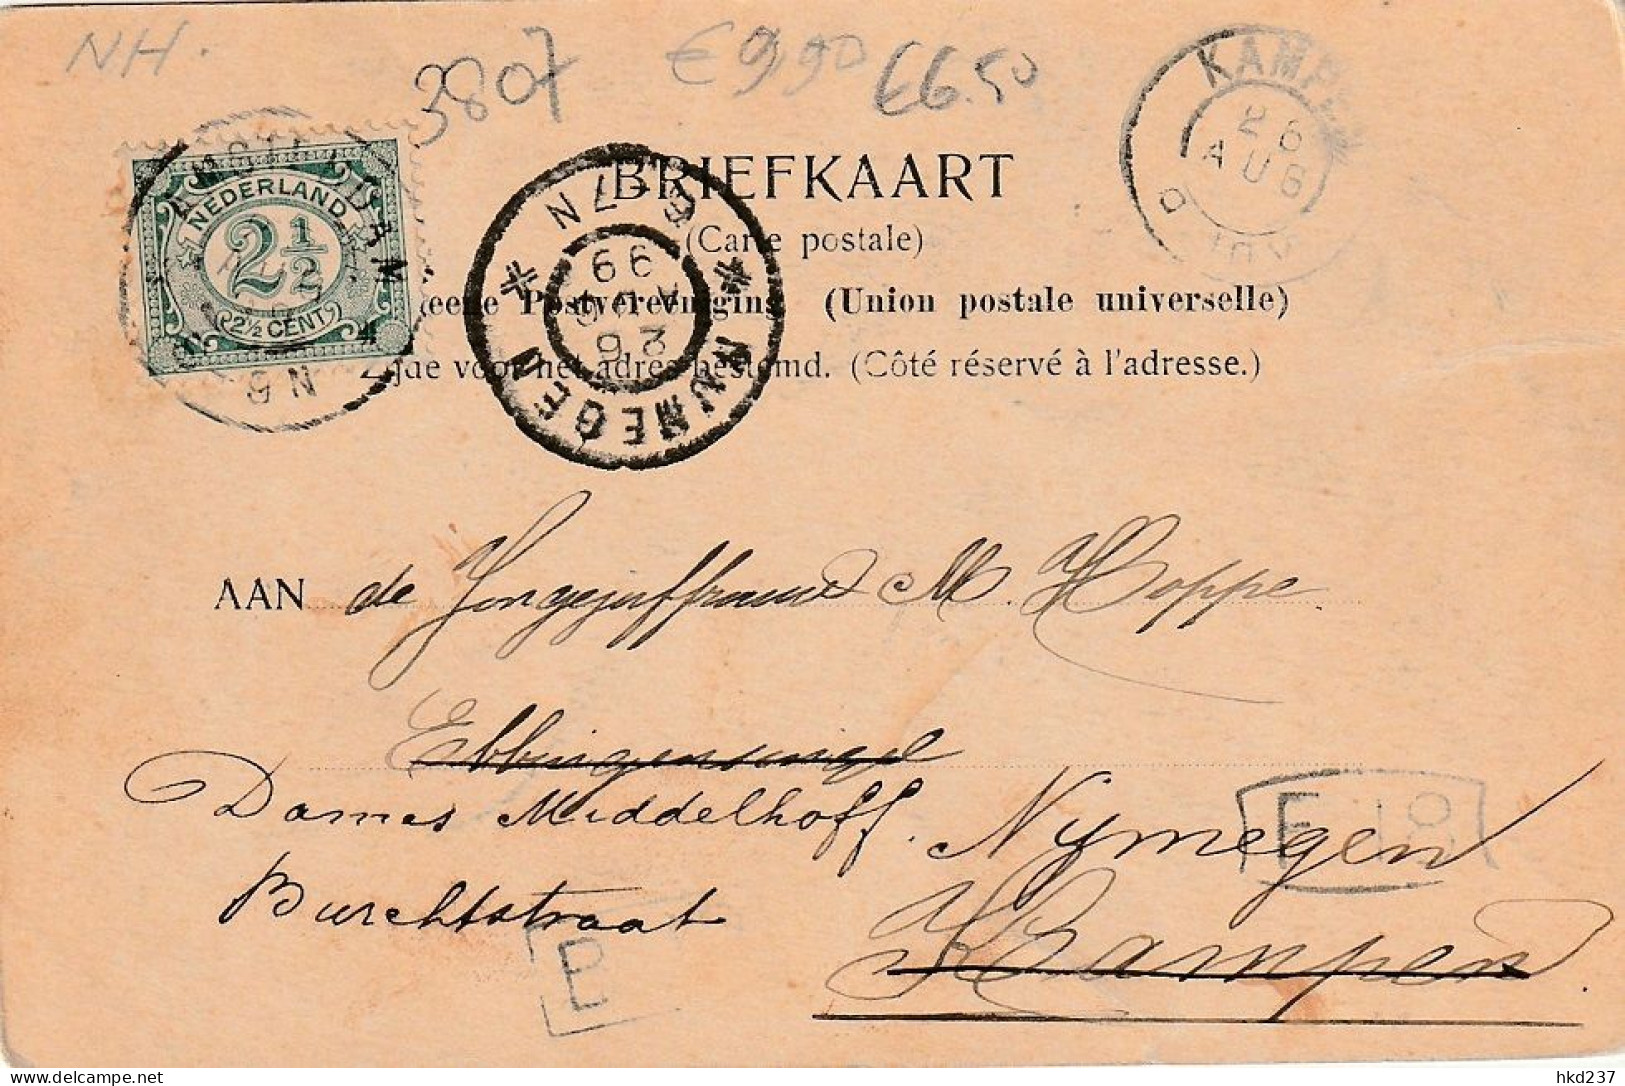 NH.
3807
€ 9,90
€6.50
KAMPEN
26
AUG
AMSTERDAM
NEDERLAND
2½
2½ CENT
NIJMEGEN
7N
99
AUG
BRIEFKAART
(Carte postale)
eene Postvereeniging (Union postale universelle)
Zijde voor het adres bestemd. (Côté réservé à l'adresse.)
AAN de Jongejuffrouw M. Hoppe
Ebbingensingel
Dames Middelhoff. Nymegen
Burchtstraat
Kampen.
E 18
B
delcampe.net
hkd237